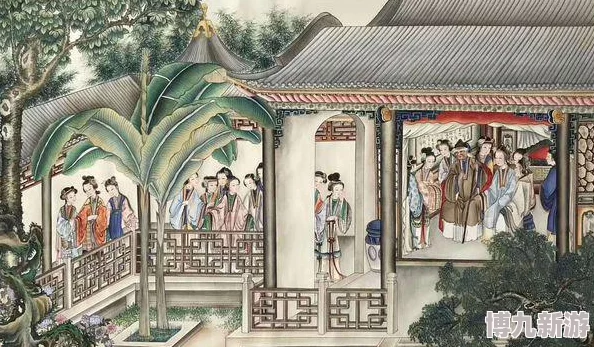 博九新游